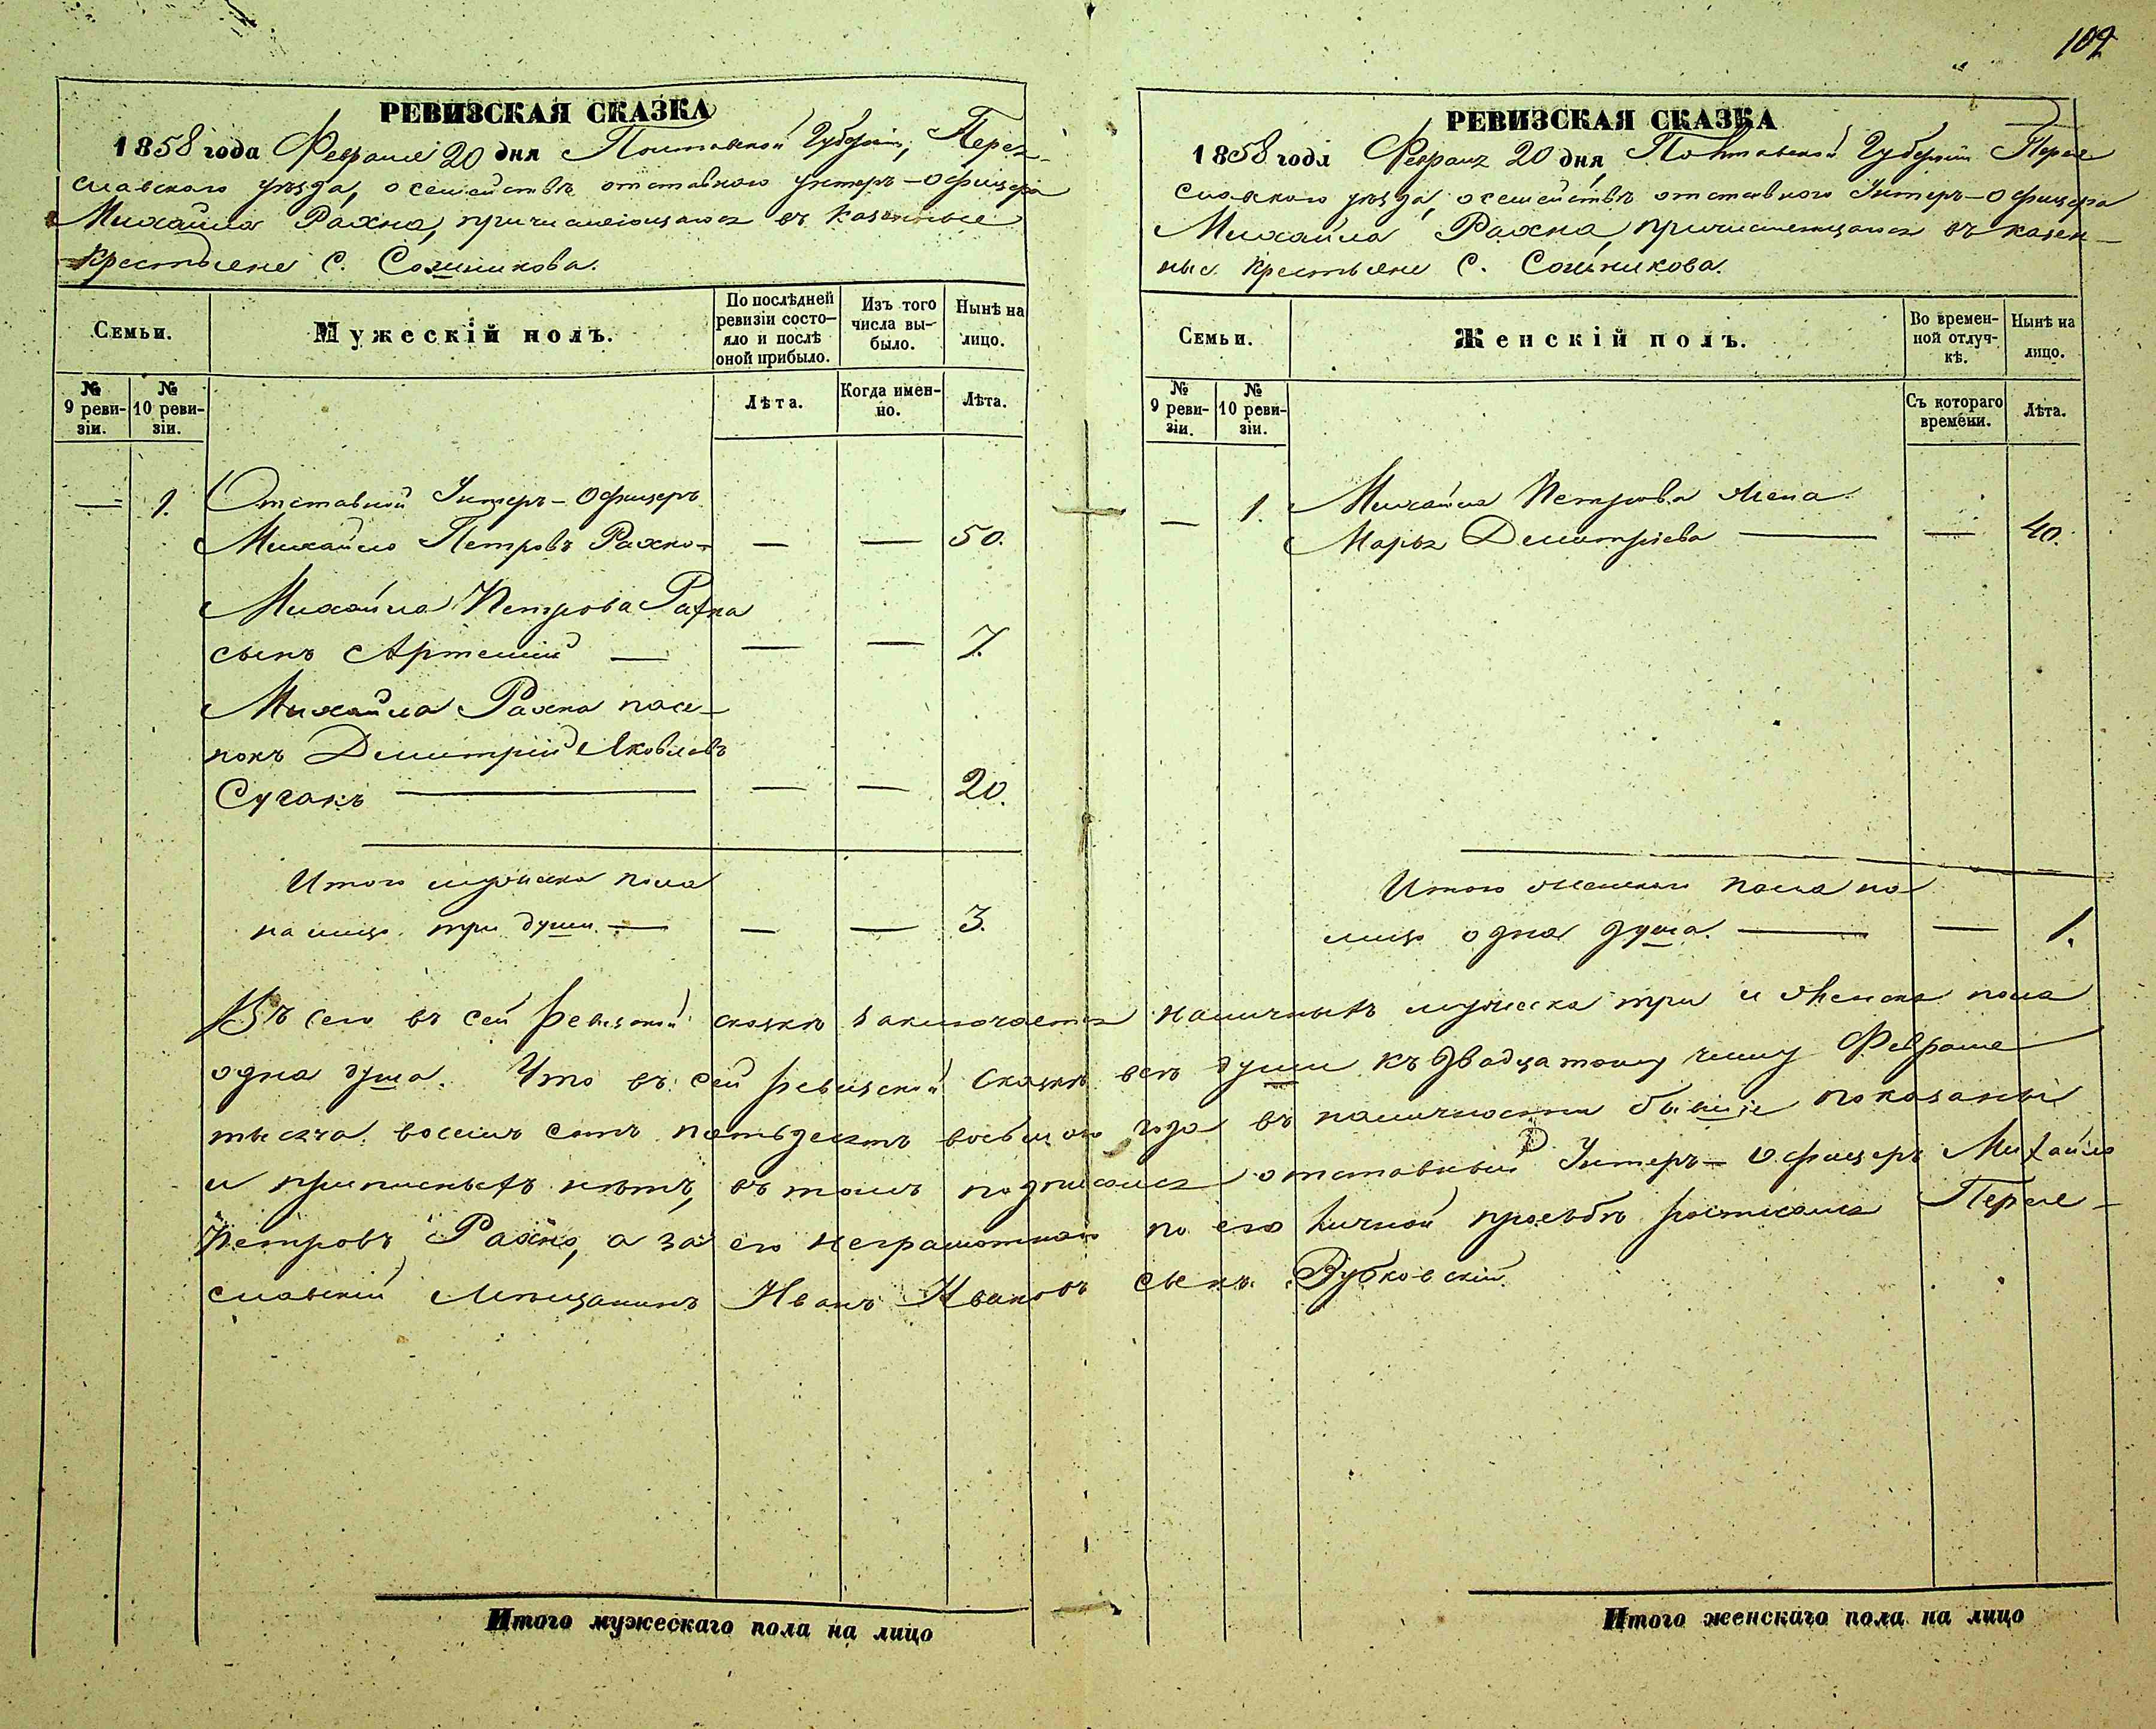 102
РЕВИЗСКАЯ СКАЗКА
1858 года Февраля 20 дня Полтавской Губерніи, Перея-
славскаго уѣзда, о семействѣ отставнаго унтеръ-офицера
Михайла Рахна, причисляющагося въ казенные
крестьяне С. Сошникова.
Семьи.
Мужескій полъ.
По послѣдней ревизіи состо-
яло и послѣ оной прибыло.
Изъ того числа вы-
было.
Нынѣ на лицо.
№ 9 реви-
зіи.
№ 10 реви-
зіи.
Лѣта.
Когда имен-
но.
Лѣта.
— 1. Отставной Унтеръ-Офицеръ
Михайло Петровъ Рахно — — — 50.
Михайла Петрова Рахна
сынъ Артемій — — — 7.
Михайла Рахна пасе-
нокъ Димитрій Яковлевъ
Сучакъ — — — 20.
Итого мужеска пола
на лицо три души. — — — 3.
РЕВИЗСКАЯ СКАЗКА
1858 года Февраля 20 дня, Полтавской Губерніи Перея
славскаго уѣзда, о семействѣ отставнаго Унтеръ-Офицера
Михайла Рахна, причисляющагося въ казен-
ные крестьяне С. Сошникова.
Семьи.
Женскій полъ.
Во времен-
ной отлуч-
кѣ.
Нынѣ на лицо.
№ 9 реви-
зіи.
№ 10 реви-
зіи.
Съ котораго времени.
Лѣта.
— 1. Михайла Петрова жена
Марья Димитріева — — 40.
Итого женскаго пола на
лицо одна душа. — — 1.
Всего въ сей ревизской сказкѣ заключается наличныхъ мужеска три и женска пола
одна душа. Что въ сей ревизской сказкѣ всѣ души къ двадцатому числу Февраля
тысяча восемь сотъ пятьдесятъ восьмого года въ наличности бывшіе показаны
и приписныхъ нѣтъ, въ томъ подписался отставный Унтеръ-Офицеръ Михайло
Петровъ Рахно, а за его неграмотнаго по его личной просьбѣ росписался Перея-
славскій Мѣщанинъ Иванъ Ивановъ сынъ Зубковскій.
Итого мужескаго пола на лицо
Итого женскаго пола на лицо